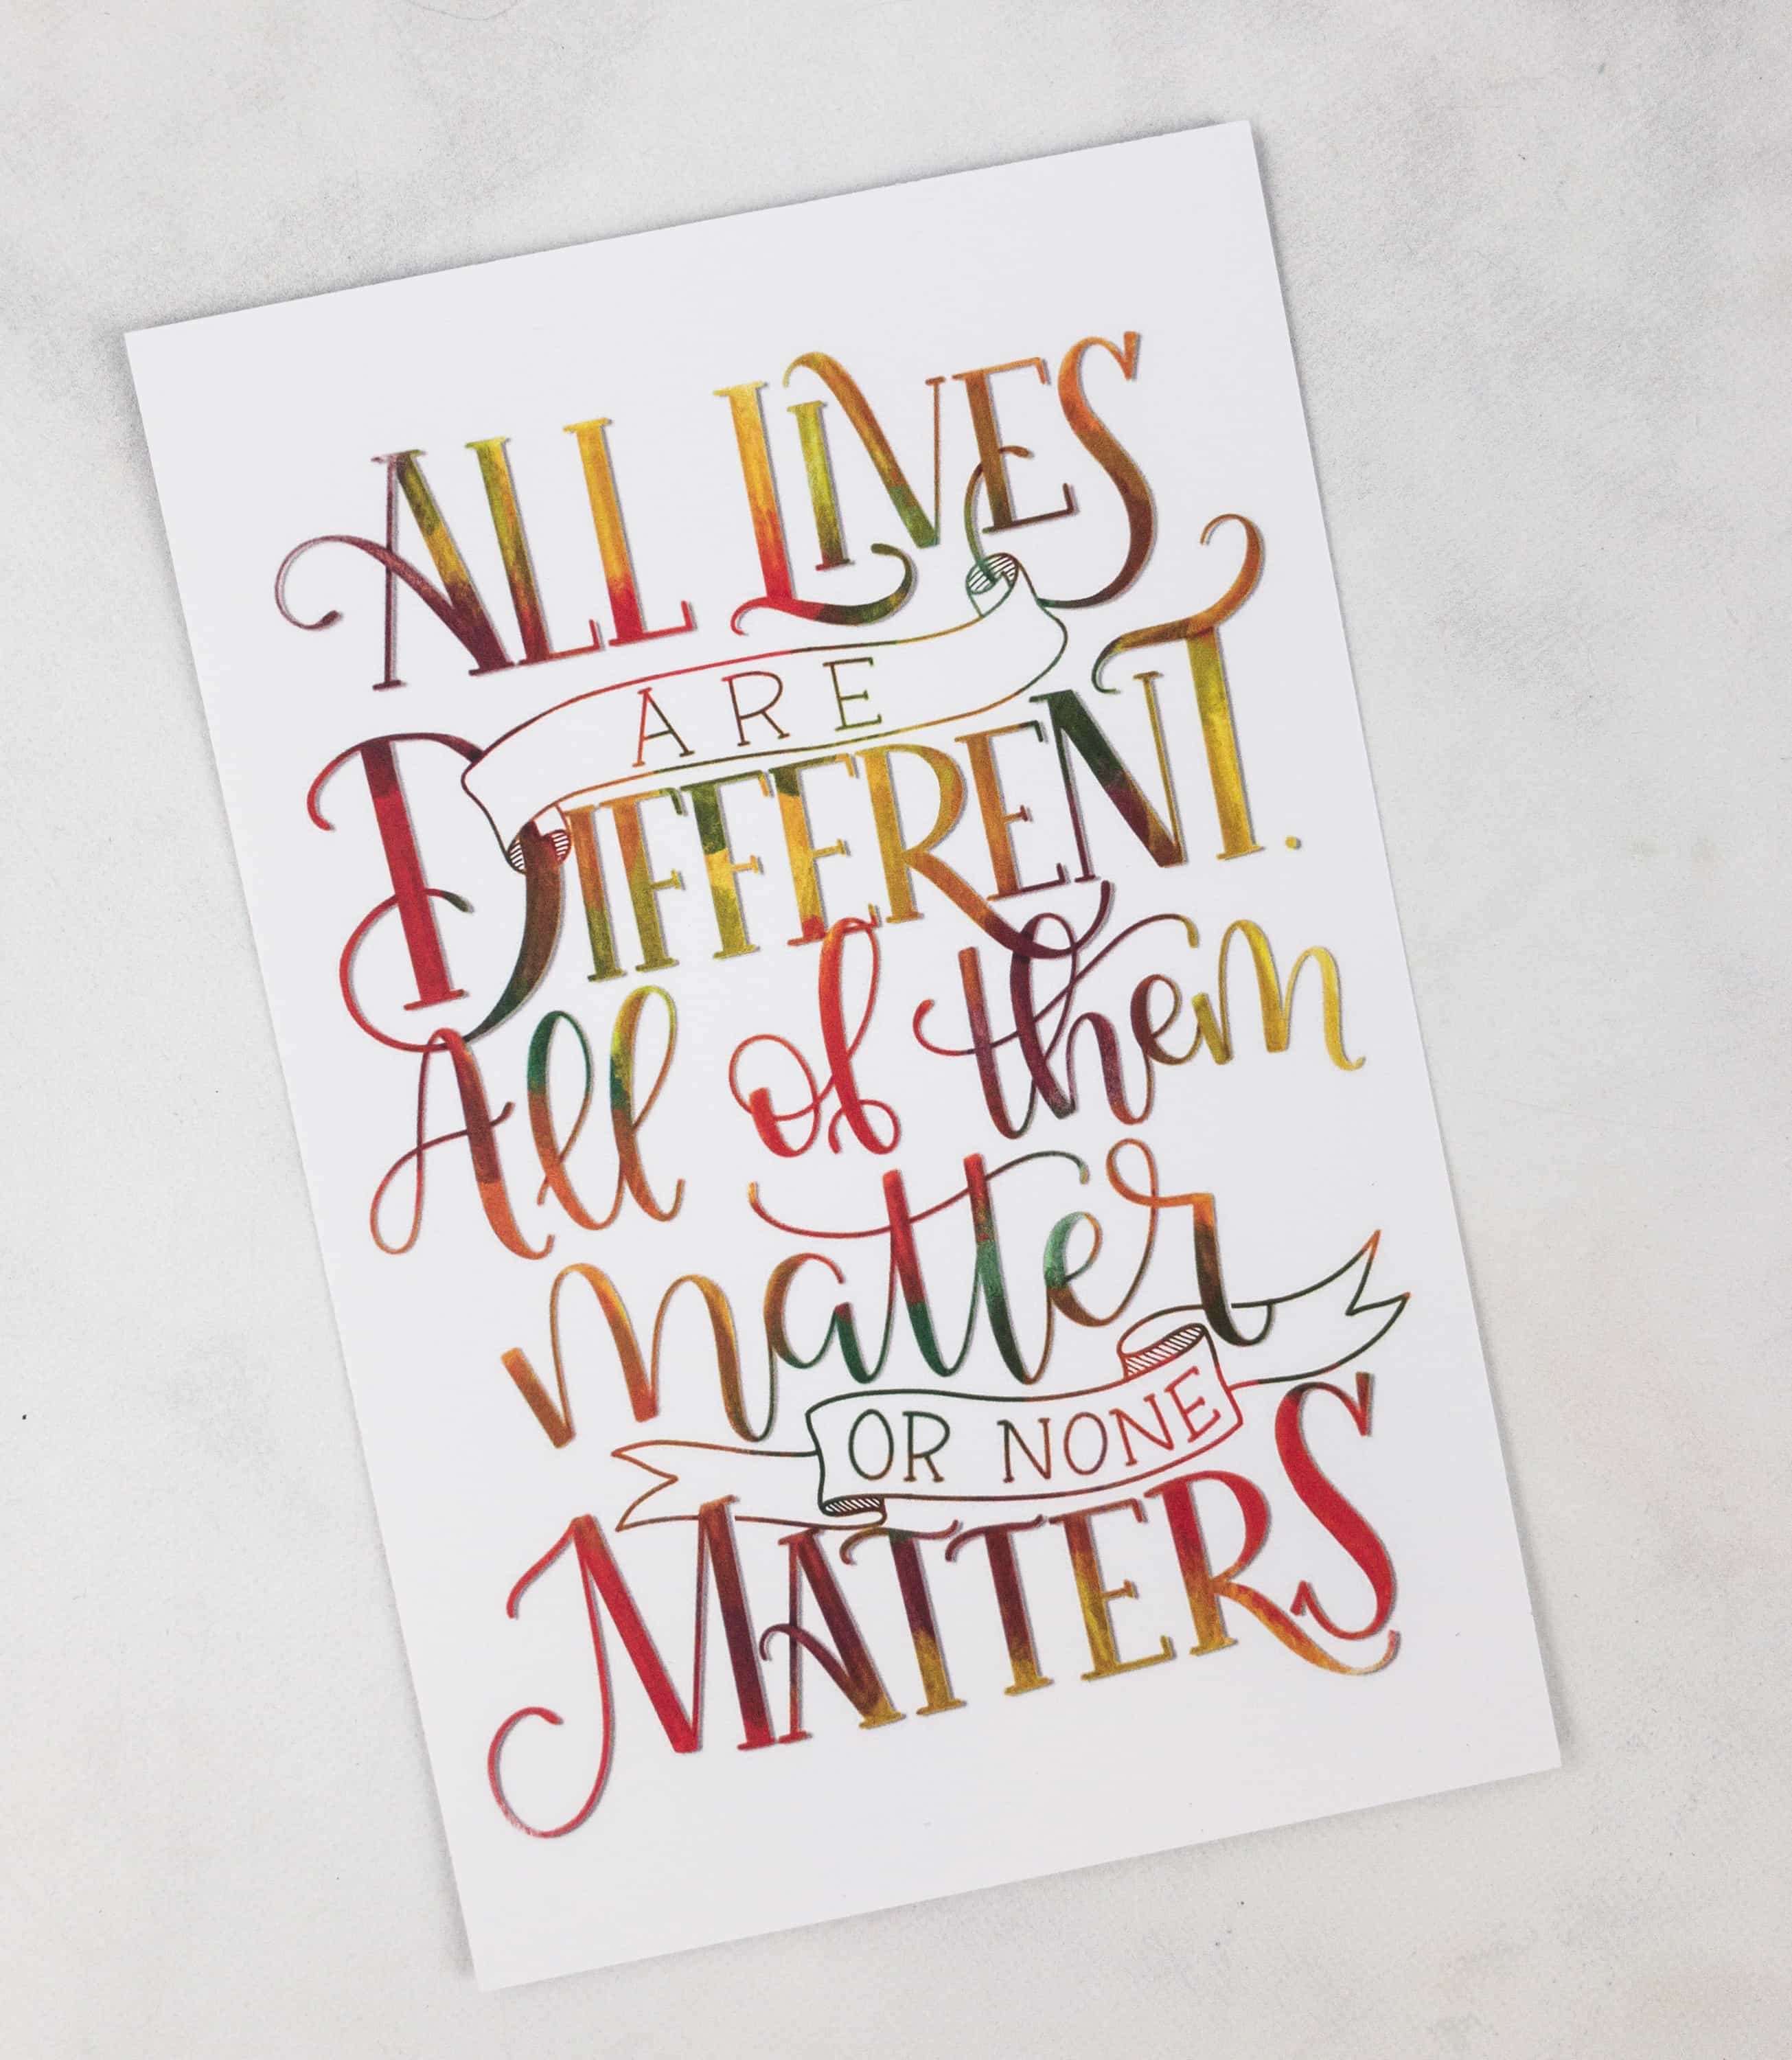 ALL LIVES
ARE
DIFFERENT.
All of them
matter
OR NONE
MATTERS